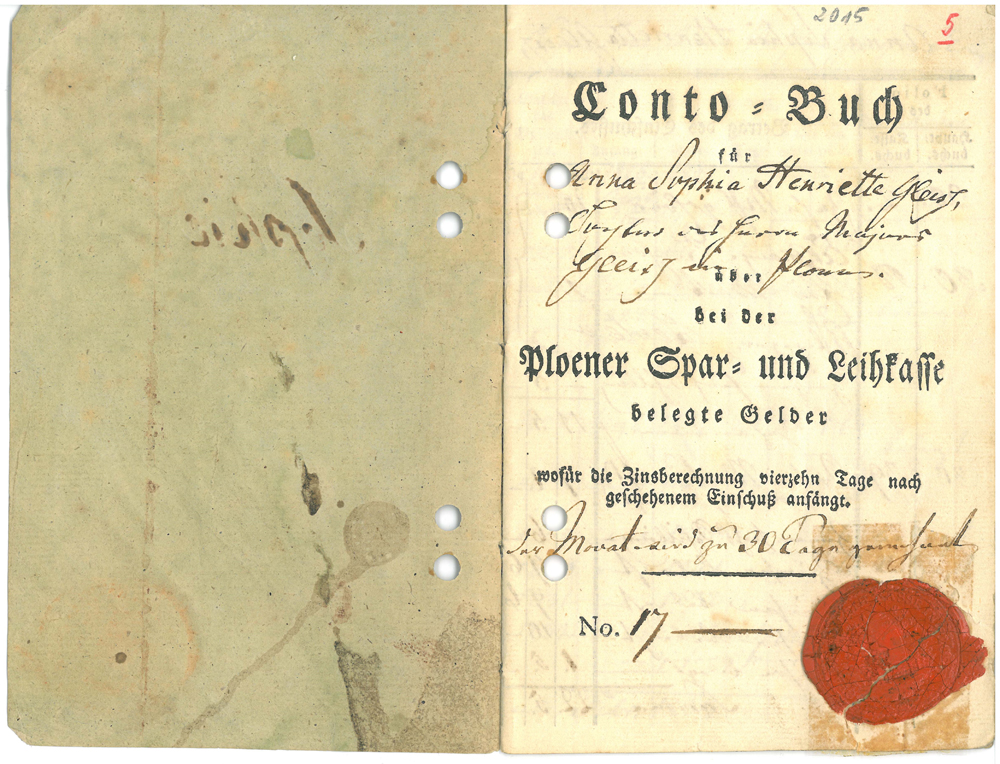 2015
5
Conto-Buch
für
Anna Sophia Henriette Gleiss,
Tochter des Herrn Majors
Gleiss in Ploen.
über
bei der
Ploener Spar- und Leihkasse
belegte Gelder
wofür die Zinsberechnung vierzehn Tage nach
geschehenem Einschuß anfängt.
der Monat wird zu 30 Tage gerechnet
No. 17